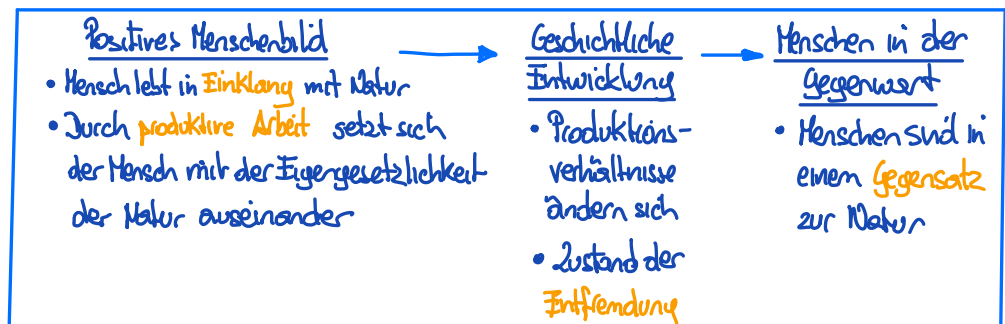 Positives Menschenbild
• Mensch lebt in Einklang mit Natur
• Durch produktive Arbeit setzt sich
der Mensch mit der Eigengesetzlichkeit
der Natur auseinander
Geschichtliche
Entwicklung
• Produktions-
verhältnisse
ändern sich
• Zustand der
Entfremdung
Menschen in der
Gegenwart
• Menschen sind in
einem Gegensatz
zur Natur